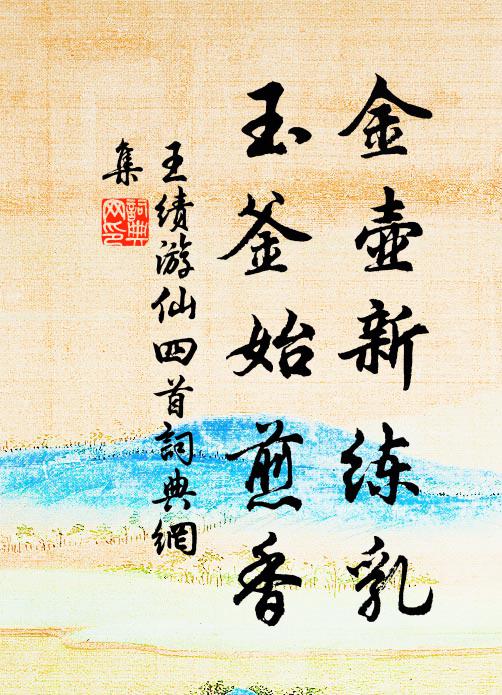 金壶新练乳
玉釜始煎香
王绩游仙四首詞典網
集
詞典
网印